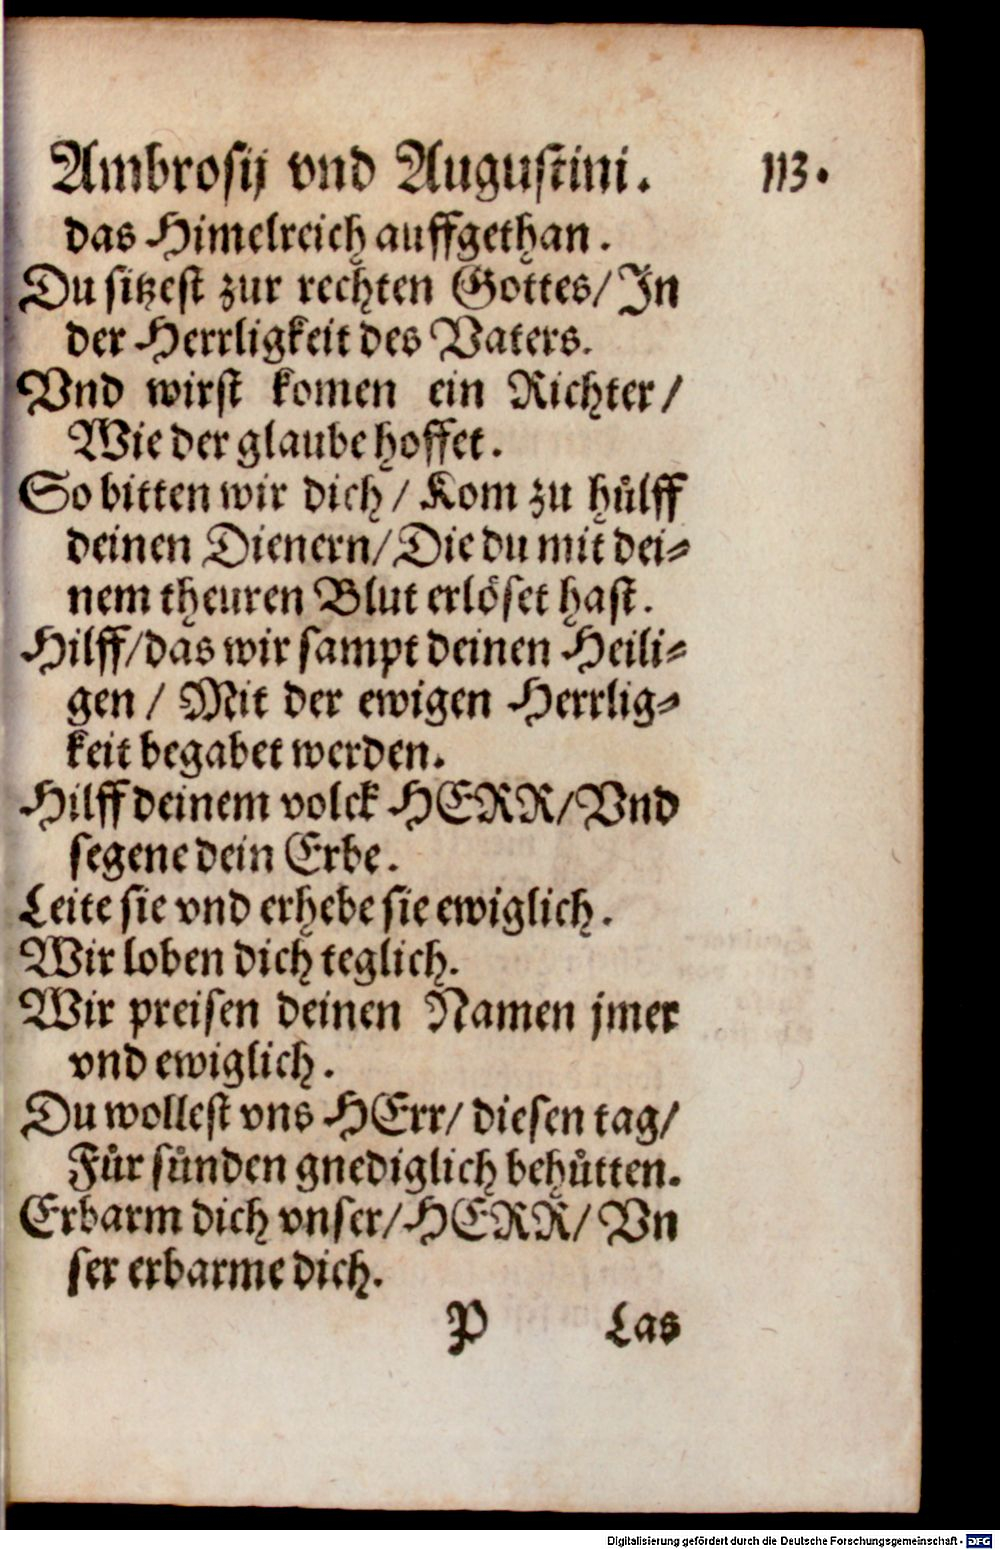 Ambrosij vnd Augustini. 113.
das Himelreich auffgethan.
Du sitzest zur rechten Gottes/ In
der Herrligkeit des Vaters.
Vnd wirst komen ein Richter/
Wie der glaube hoffet.
So bitten wir dich/ Kom zu huͤlff
deinen Dienern/ Die du mit dei⸗
nem theuren Blut erloͤset hast.
Hilff/ das wir sampt deinen Heili⸗
gen/ Mit der ewigen Herrlig⸗
keit begabet werden.
Hilff deinem volck HERR/ Vnd
segene dein Erbe.
Leite sie vnd erhebe sie ewiglich.
Wir loben dich teglich.
Wir preisen deinen Namen jmer
vnd ewiglich.
Du wollest vns HErr/ diesen tag/
Fuͤr suͤnden gnediglich behuͤtten.
Erbarm dich vnser/ HERR/ Vn
ser erbarme dich.
P Las
Digitalisierung gefördert durch die Deutsche Forschungsgemeinschaft - DFG